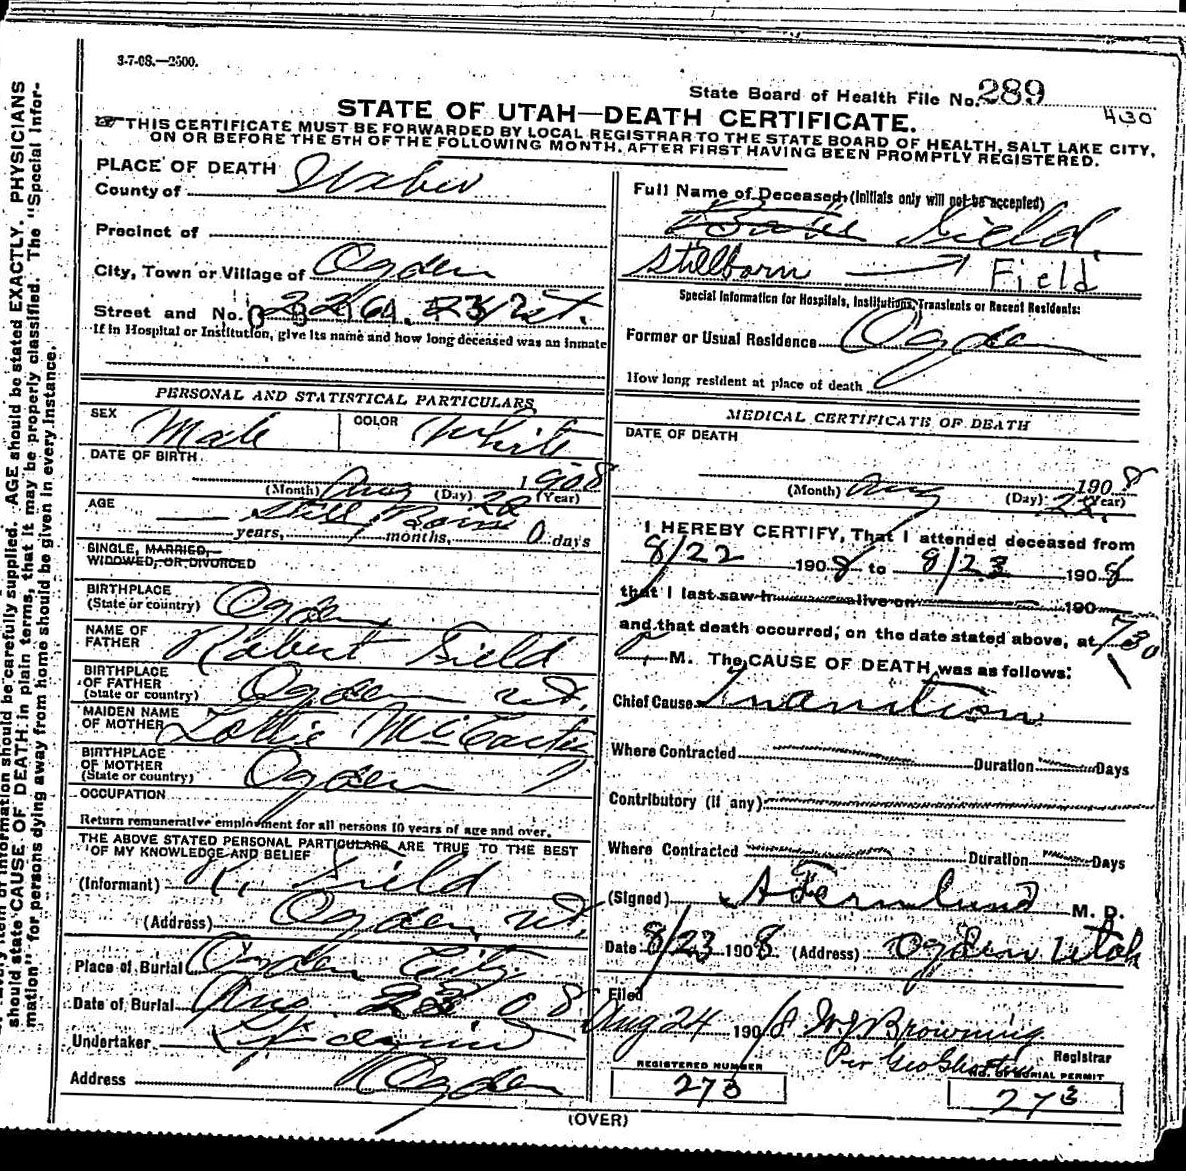 3-7-08.—2500.
State Board of Health File No. 289
430
STATE OF UTAH—DEATH CERTIFICATE.
THIS CERTIFICATE MUST BE FORWARDED BY LOCAL REGISTRAR TO THE STATE BOARD OF HEALTH, SALT LAKE CITY,
ON OR BEFORE THE 5TH OF THE FOLLOWING MONTH. AFTER FIRST HAVING BEEN PROMPTLY REGISTERED.
PLACE OF DEATH
County of Weber
Precinct of
City, Town or Village of Ogden
Street and No.
If in Hospital or Institution, give its name and how long deceased was an inmate
Full Name of Deceased (Initials only will not be accepted)
Field
Stillborn Field
Special Information for Hospitals, Institutions, Transients or Recent Residents:
Former or Usual Residence Ogden
How long resident at place of death
PERSONAL AND STATISTICAL PARTICULARS
SEX Male COLOR White
DATE OF BIRTH
1908
(Month) Aug (Day) (Year)
AGE Still Born
years, months, 0 days
SINGLE, MARRIED,
WIDOWED, OR DIVORCED
BIRTHPLACE
(State or country) Ogden
NAME OF
FATHER Robert Field
BIRTHPLACE
OF FATHER
(State or country) Ogden Ut.
MAIDEN NAME
OF MOTHER Lottie
BIRTHPLACE
OF MOTHER
(State or country) Ogden
OCCUPATION
Return remunerative employment for all persons 10 years of age and over.
THE ABOVE STATED PERSONAL PARTICULARS ARE TRUE TO THE BEST
OF MY KNOWLEDGE AND BELIEF
(Informant) R. Field
(Address) Ogden, Ut.
Place of Burial Ogden City
Date of Burial Aug. 08
Undertaker
Address Ogden
MEDICAL CERTIFICATE OF DEATH
DATE OF DEATH
1908
(Month) Aug (Day) (Year)
I HEREBY CERTIFY, That I attended deceased from
8/22 1908 to 8/23 1908
that I last saw h alive on 190
and that death occurred, on the date stated above, at 730
P. M. The CAUSE OF DEATH was as follows:
Chief Cause Inanition
Where Contracted Duration Days
Contributory (if any)
Where Contracted Duration Days
(Signed) M. D.
Date 8/23 1908 (Address) Ogden Utah
Filed
Aug 24 1908 Browning
Registrar
Per Geo
REGISTERED NUMBER
273
NO. OF BURIAL PERMIT
273
(OVER)
item of information should be carefully supplied. AGE should be stated EXACTLY. PHYSICIANS
should state CAUSE OF DEATH in plain terms, that it may be properly classified. The "Special Infor-
mation" for persons dying away from home should be given in every instance.